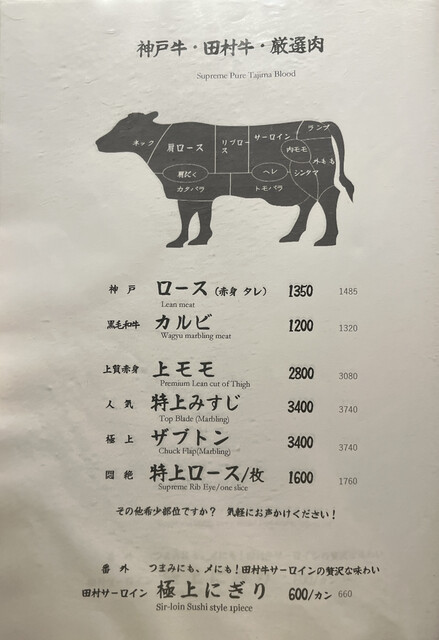 神戸牛・田村牛・厳選肉
Supreme Pure Tajima Blood
ネック
肩ロース
リブロース
サーロイン
ランプ
内モモ
外モモ
肩にく
ヘレ
シンタマ
カタバラ
トモバラ
神戸 ロース (赤身 タレ) 1350 1485
Lean meat
黒毛和牛 カルビ 1200 1320
Wagyu marbling meat
上質赤身 上モモ 2800 3080
Premium Lean cut of Thigh
人気 特上みすじ 3400 3740
Top Blade (Marbling)
極上 ザブトン 3400 3740
Chuck Flap(Marbling)
悶絶 特上ロース/枚 1600 1760
Supreme Rib Eye/one slice
その他希少部位ですか? 気軽にお声かけください!
番外 つまみにも、〆にも!田村牛サーロインの贅沢な味わい
田村サーロイン 極上にぎり 600/カン 660
Sir-loin Sushi style 1piece